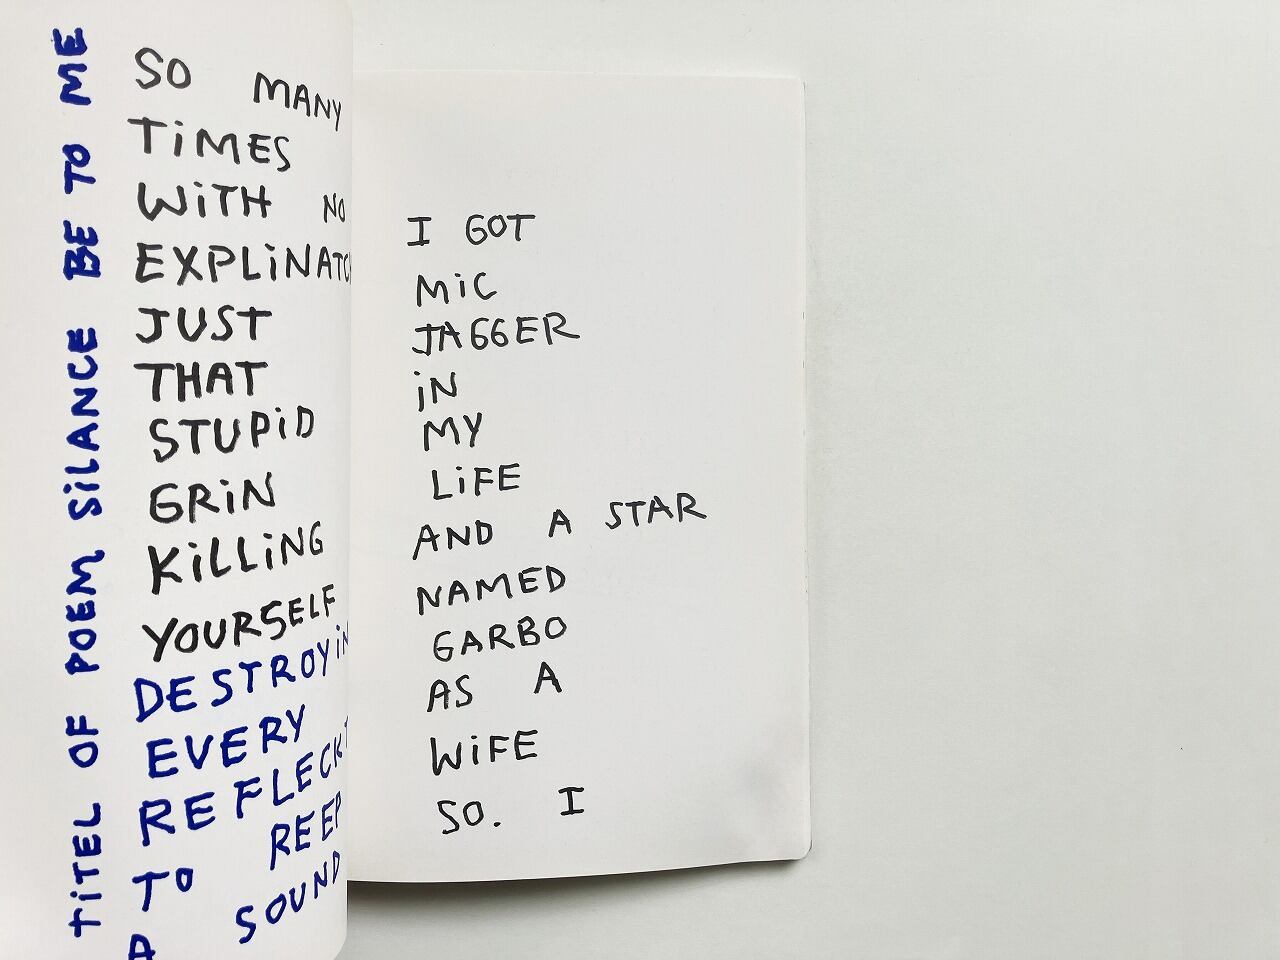 TiTEL OF POEM SiLANCE BE TO ME
SO MANY
TiMES
WiTH NO
EXPLiNATO
JUST
THAT
STUPiD
GRiN
KiLLiNG
YOURSELF
DESTROYiN
EVERY
REFLECKT
TO REEP
A SOUND
I GOT
MiC
JAGGER
iN
MY
LiFE
AND A STAR
NAMED
GARBO
AS A
WiFE
SO. I